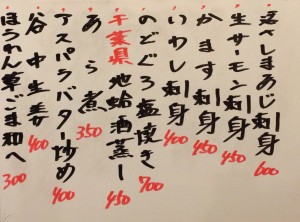 活〆しまあじ刺身 600
生サーモン刺身 450
かます刺身 450
いわし刺身 400
のどぐろ塩焼き 700
千葉県 地蛤酒蒸し 450
あら煮 350
アスパラバター炒め 400
谷中生姜 400
ほうれん草ごま和へ 300